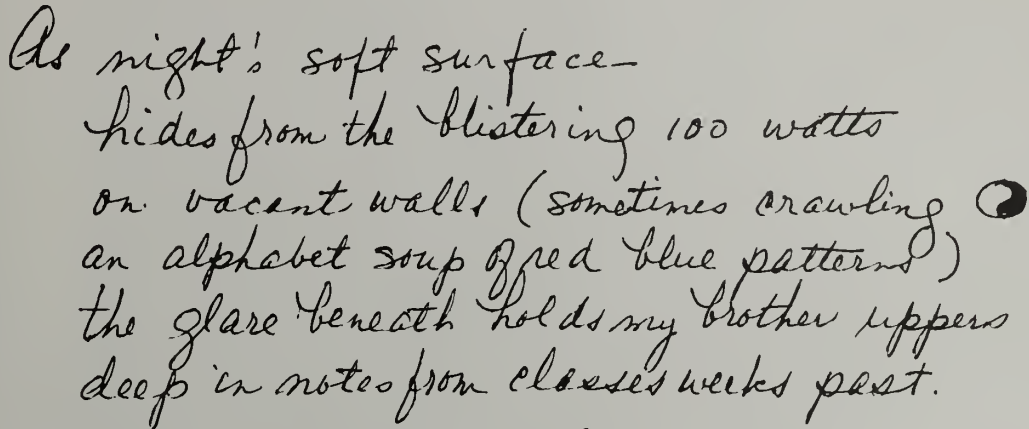 As night's soft surface—
hides from the blistering 100 watts
on vacant walls (sometimes crawling
an alphabet soup of red blue patterns)
the glare beneath holds my brother uppers
deep in notes from classes weeks past.